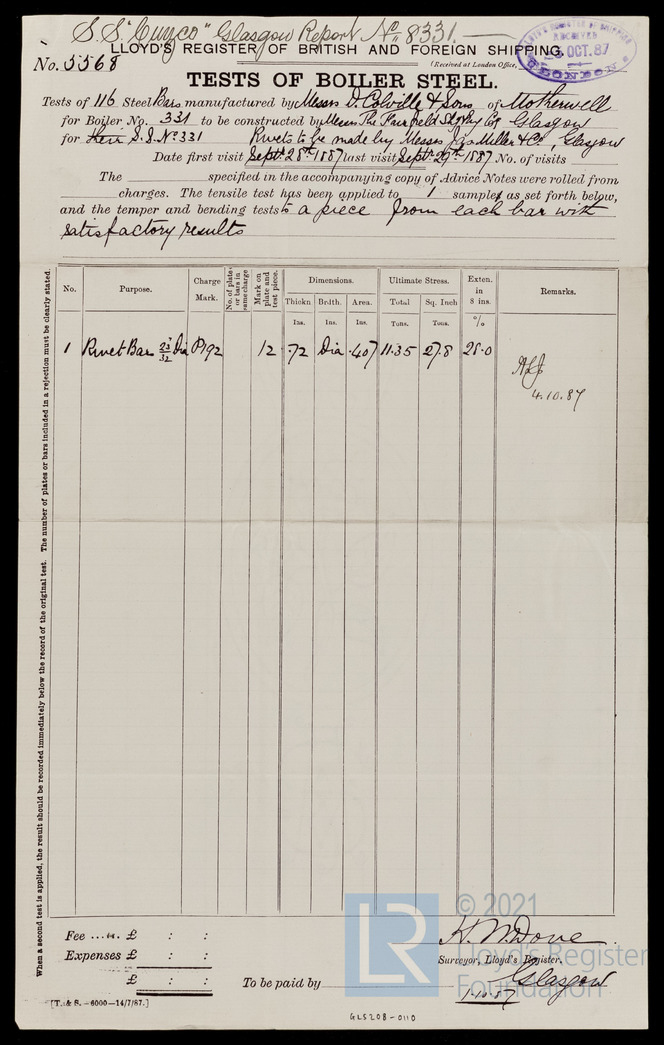 S.S. "Cuzco" Glasgow Report No. 8331.
LLOYD'S REGISTER OF BRITISH AND FOREIGN SHIPPING.
No. 5568
(Received at London Office,
RECEIVED
OCT. 87
LONDON
TESTS OF BOILER STEEL.
Tests of 116 Steel Bars manufactured by Messrs D. Colville & Sons of Motherwell
for Boiler No. 331 to be constructed by Messrs The Fairfield Sh. & Eng Co Glasgow
for their S.S. No 331 Rivets to be made by Messrs Jas Miller & Co, Glasgow
Date first visit Sept. 28th 1887 last visit Sept. 29th 1887 No. of visits
The specified in the accompanying copy of Advice Notes were rolled from
charges. The tensile test has been applied to 1 sample as set forth below,
and the temper and bending tests to a piece from each bar with
satisfactory results
When a second test is applied, the result should be recorded immediately below the record of the original test. The number of plates or bars included in a rejection must be clearly stated.
No. Purpose. Charge Mark. No. of plates or bars in same charge Mark on plate and test piece. Dimensions. Ultimate Stress. Exten. in 8 ins. Remarks.
Thickn. Brdth. Area. Total Sq. Inch
Ins. Ins. Ins. Tons. Tons. %
1 Rivet Bar 23/32 Dia P192 12 .72 Dia .407 11.35 27.8 28.0
4.10.87
Fee £ : :
Expenses £ : :
£ : :
To be paid by
H. M. Dove
Surveyor, Lloyd's Register,
Glasgow
1.10.87
[T. & S.-6000-14/7/87.]
GLS208-0110
LR
© 2021
Lloyd's Register
Foundation